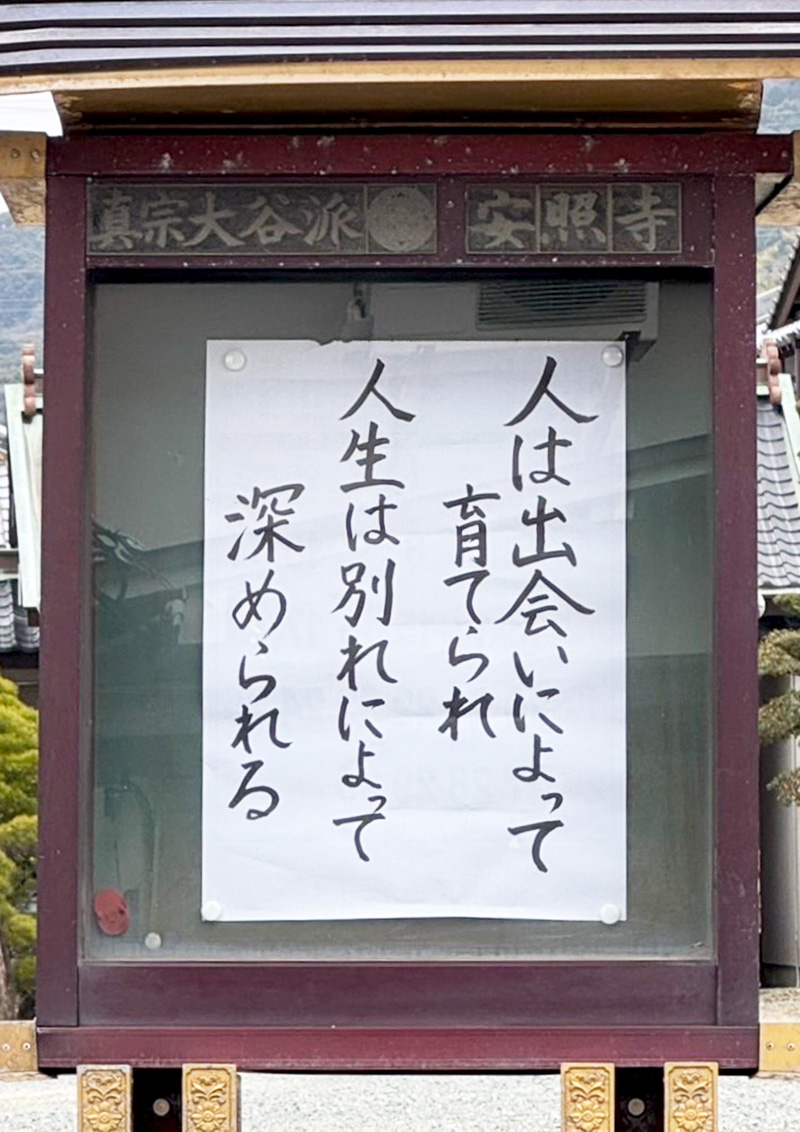 真宗大谷派 安照寺
人は出会いによって
育てられ
人生は別れによって
深められる